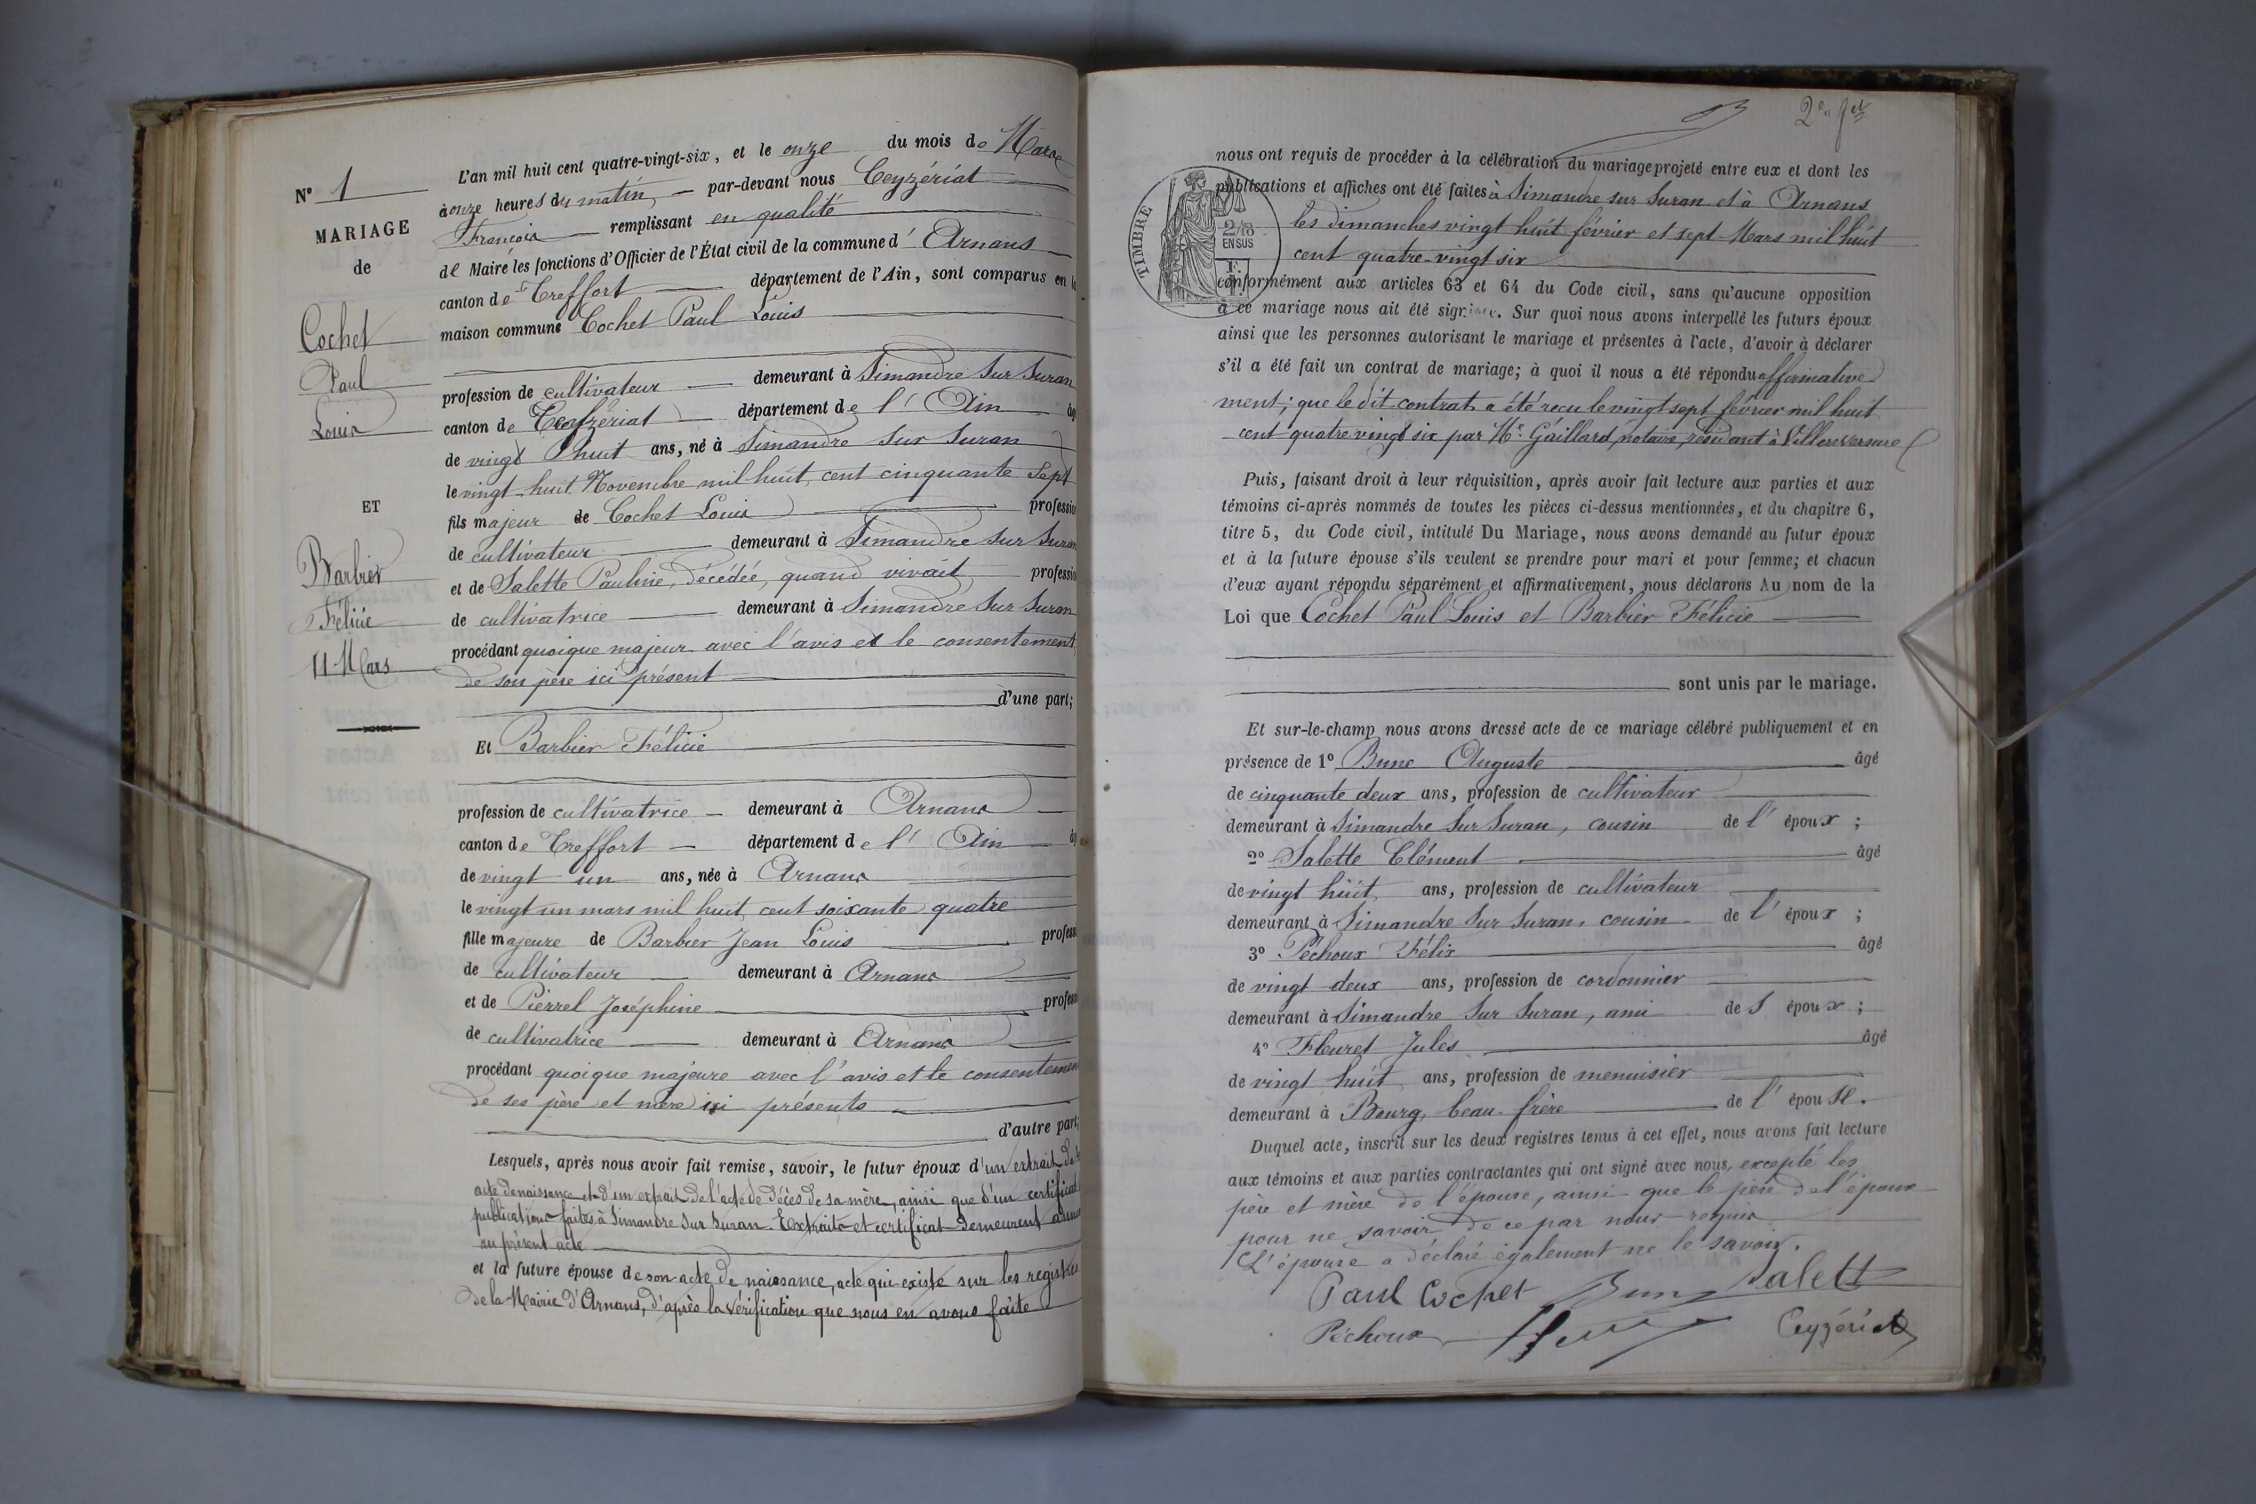 N° 1
MARIAGE
de
Cochet
Paul
Louis
ET
Barbier
Félicie
11 Mars
L'an mil huit cent quatre-vingt-six, et le onze du mois de Mars
à onze heures du matin par-devant nous Ceyzériat
François remplissant en qualité
de Maire les fonctions d'Officier de l'État civil de la commune d'Arnans
canton de Treffort département de l'Ain, sont comparus en la
maison commune Cochet Paul Louis
profession de cultivateur demeurant à Simandre sur Suran
canton de Ceyzériat département de l'Ain
de vingt huit ans, né à Simandre sur Suran
le vingt-huit Novembre mil huit cent cinquante sept
fils majeur de Cochet Louis profession
de cultivateur demeurant à Simandre sur Suran
et de Salette Pauline, décédée, quand vivait profession
de cultivatrice demeurant à Simandre sur Suran
procédant quoique majeur avec l'avis et le consentement
de son père ici présent
d'une part;
Et Barbier Félicie
profession de cultivatrice demeurant à Arnans
canton de Treffort département de l'Ain
de vingt un ans, née à Arnans
le vingt un mars mil huit cent soixante quatre
fille majeure de Barbier Jean Louis profess
de cultivateur demeurant à Arnans
et de Pierrel Joséphine profess
de cultivatrice demeurant à Arnans
procédant quoique majeure avec l'avis et le consentemen
de ses père et mère ici présents
d'autre part;
Lesquels, après nous avoir fait remise, savoir, le futur époux d'un extrait de
acte de naissance et d'un extrait de l'acte de décès de sa mère, ainsi que d'un certificat
publications faites à Simandre sur Suran. Extraits et certificat demeurent
au présent acte
et la future épouse de son acte de naissance, acte qui existe sur les registres
de la Mairie d'Arnans, d'après la vérification que nous en avons faite
TIMBRE
EN SUS
nous ont requis de procéder à la célébration du mariage projeté entre eux et dont les
publications et affiches ont été faites à Simandre sur Suran et à Arnans
les dimanches vingt huit février et sept Mars mil huit
cent quatre-vingt six
conformément aux articles 63 et 64 du Code civil, sans qu'aucune opposition
à ce mariage nous ait été signifiée. Sur quoi nous avons interpellé les futurs époux
ainsi que les personnes autorisant le mariage et présentes à l'acte, d'avoir à déclarer
s'il a été fait un contrat de mariage; à quoi il nous a été répondu affirmative
ment; que le dit contrat a été reçu le vingt sept février mil huit
cent quatre vingt six par Me Gaillard, notaire, résidant à Villereversure
Puis, faisant droit à leur réquisition, après avoir fait lecture aux parties et aux
témoins ci-après nommés de toutes les pièces ci-dessus mentionnées, et du chapitre 6,
titre 5, du Code civil, intitulé Du Mariage, nous avons demandé au futur époux
et à la future épouse s'ils veulent se prendre pour mari et pour femme; et chacun
d'eux ayant répondu séparément et affirmativement, nous déclarons Au nom de la
Loi que Cochet Paul Louis et Barbier Félicie
sont unis par le mariage.
Et sur-le-champ nous avons dressé acte de ce mariage célébré publiquement et en
présence de 1° Bunc Auguste âgé
de cinquante deux ans, profession de cultivateur
demeurant à Simandre sur Suran, cousin de l'époux;
2° Salette Clément âgé
de vingt huit ans, profession de cultivateur
demeurant à Simandre sur Suran, cousin de l'époux;
3° Péchoux Félix âgé
de vingt deux ans, profession de cordonnier
demeurant à Simandre sur Suran, ami de l époux;
4° Fleuret Jules âgé
de vingt huit ans, profession de menuisier
demeurant à Bourg, beau-frère de l'époux.
Duquel acte, inscrit sur les deux registres tenus à cet effet, nous avons fait lecture
aux témoins et aux parties contractantes qui ont signé avec nous, excepté les
père et mère de l'épouse, ainsi que le père de l'époux
pour ne savoir de ce par nous requis
L'épouse a déclaré également ne le savoir.
Paul Cochet Salett
Péchoux Ceyzériat